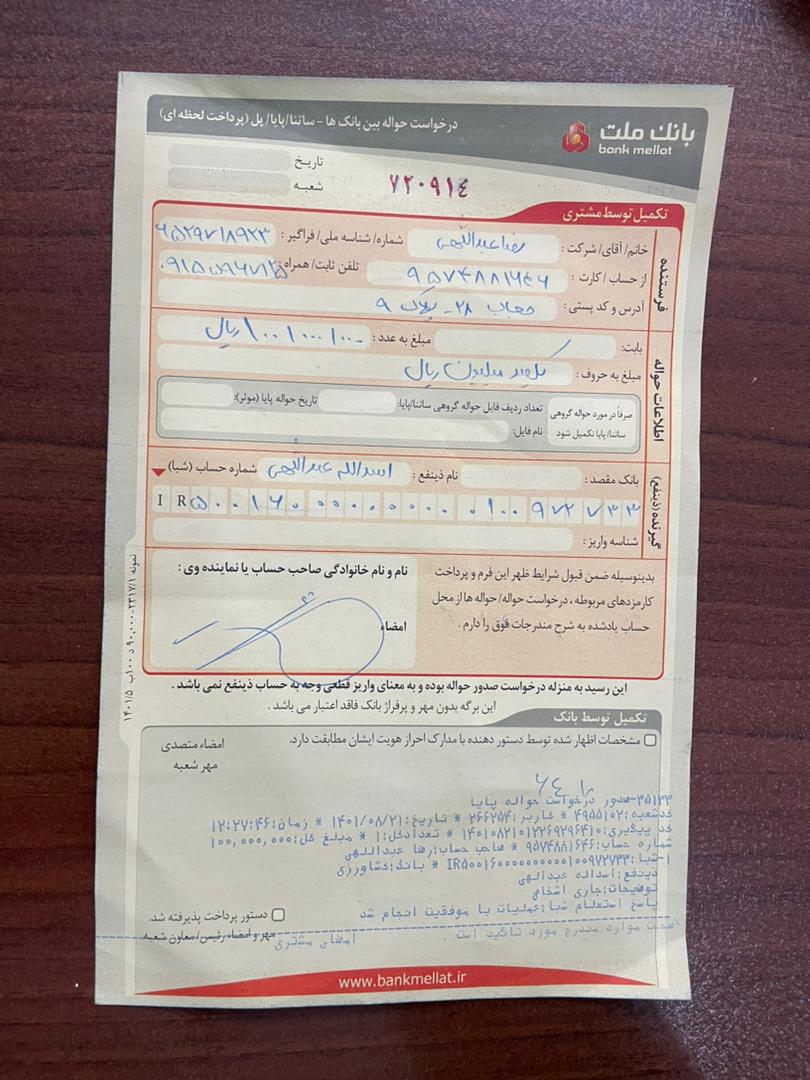 بانک ملت
bank mellat
درخواست حواله بین بانک ها - ساتنا/پایا/ پل (پرداخت لحظه ای)
تاریخ
شعبه
۷۲۰۹۱٤
تکمیل توسط مشتری
فرستنده
خانم/ آقای/ شرکت: رضا عبدالهی شماره/ شناسه ملی/ فراگیر:
از حساب / کارت: ۹۵۷۴۸۸۱۶۴۶ تلفن ثابت/ همراه:
آدرس و کد پستی: ۲۸ - پلاک ۹
اطلاعات حواله
بابت: مبلغ به عدد: ۱۰۰/۰۰۰/۰۰۰ ریال
مبلغ به حروف: یکصد میلیون ریال
صرفاً در مورد حواله گروهی ساتنا/پایا تکمیل شود
تعداد ردیف فایل حواله گروهی ساتنا/پایا: تاریخ حواله پایا (موثر):
نام فایل:
گیرنده (ذینفع)
بانک مقصد: نام ذینفع: اسدالله عبدالهی شماره حساب (شبا)
IR ۵۰۰۱۶۰۰۰۰۰۰۰۰۰۰۱۰۰۹۷۲۷۳۳
شناسه واریز:
بدینوسیله ضمن قبول شرایط ظهر این فرم و پرداخت
کارمزدهای مربوطه، درخواست حواله/ حواله ها از محل
حساب یادشده به شرح مندرجات فوق را دارم.
نام و نام خانوادگی صاحب حساب یا نماینده وی:
امضاء
این رسید به منزله درخواست صدور حواله بوده و به معنای واریز قطعی وجه به حساب ذینفع نمی باشد.
این برگه بدون مهر و پرفراژ بانک فاقد اعتبار می باشد.
تکمیل توسط بانک
مشخصات اظهار شده توسط دستور دهنده با مدارک احراز هویت ایشان مطابقت دارد.
امضاء متصدی
مهر شعبه
۳۵۱۳۳-صدور درخواست حواله پایا
کدشعبه:۴۹۵۵۱۰۲ * کاربر:۲۶۶۲۵۴ * تاریخ:۱۴۰۱/۰۸/۲۱ * زمان:۱۲:۲۷:۴۶
کد پیگیری:۱۴۰۱۰۸۲۱۰۱۲۲۶۹۲۹۶۴۱۰ * تعدادکل:۱ * مبلغ کل:۱۰۰,۰۰۰,۰۰۰
شماره حساب:۹۵۷۴۸۸۱۶۴۶ * صاحب حساب:رضا عبدالهی
۱-شبا:IR۵۰۰۱۶۰۰۰۰۰۰۰۰۰۰۱۰۰۹۷۲۷۳۳ * بانک:کشاورزی
ذینفع:اسداله عبدالهی
توضیحات:جاری اشخاص
پاسخ استعلام شبا:عملیات با موفقیت انجام شد
صحت موارد مندرج مورد تائید است امضای مشتری
دستور پرداخت پذیرفته شد.
مهر و امضاء رئیس/ معاون شعبه
www.bankmellat.ir